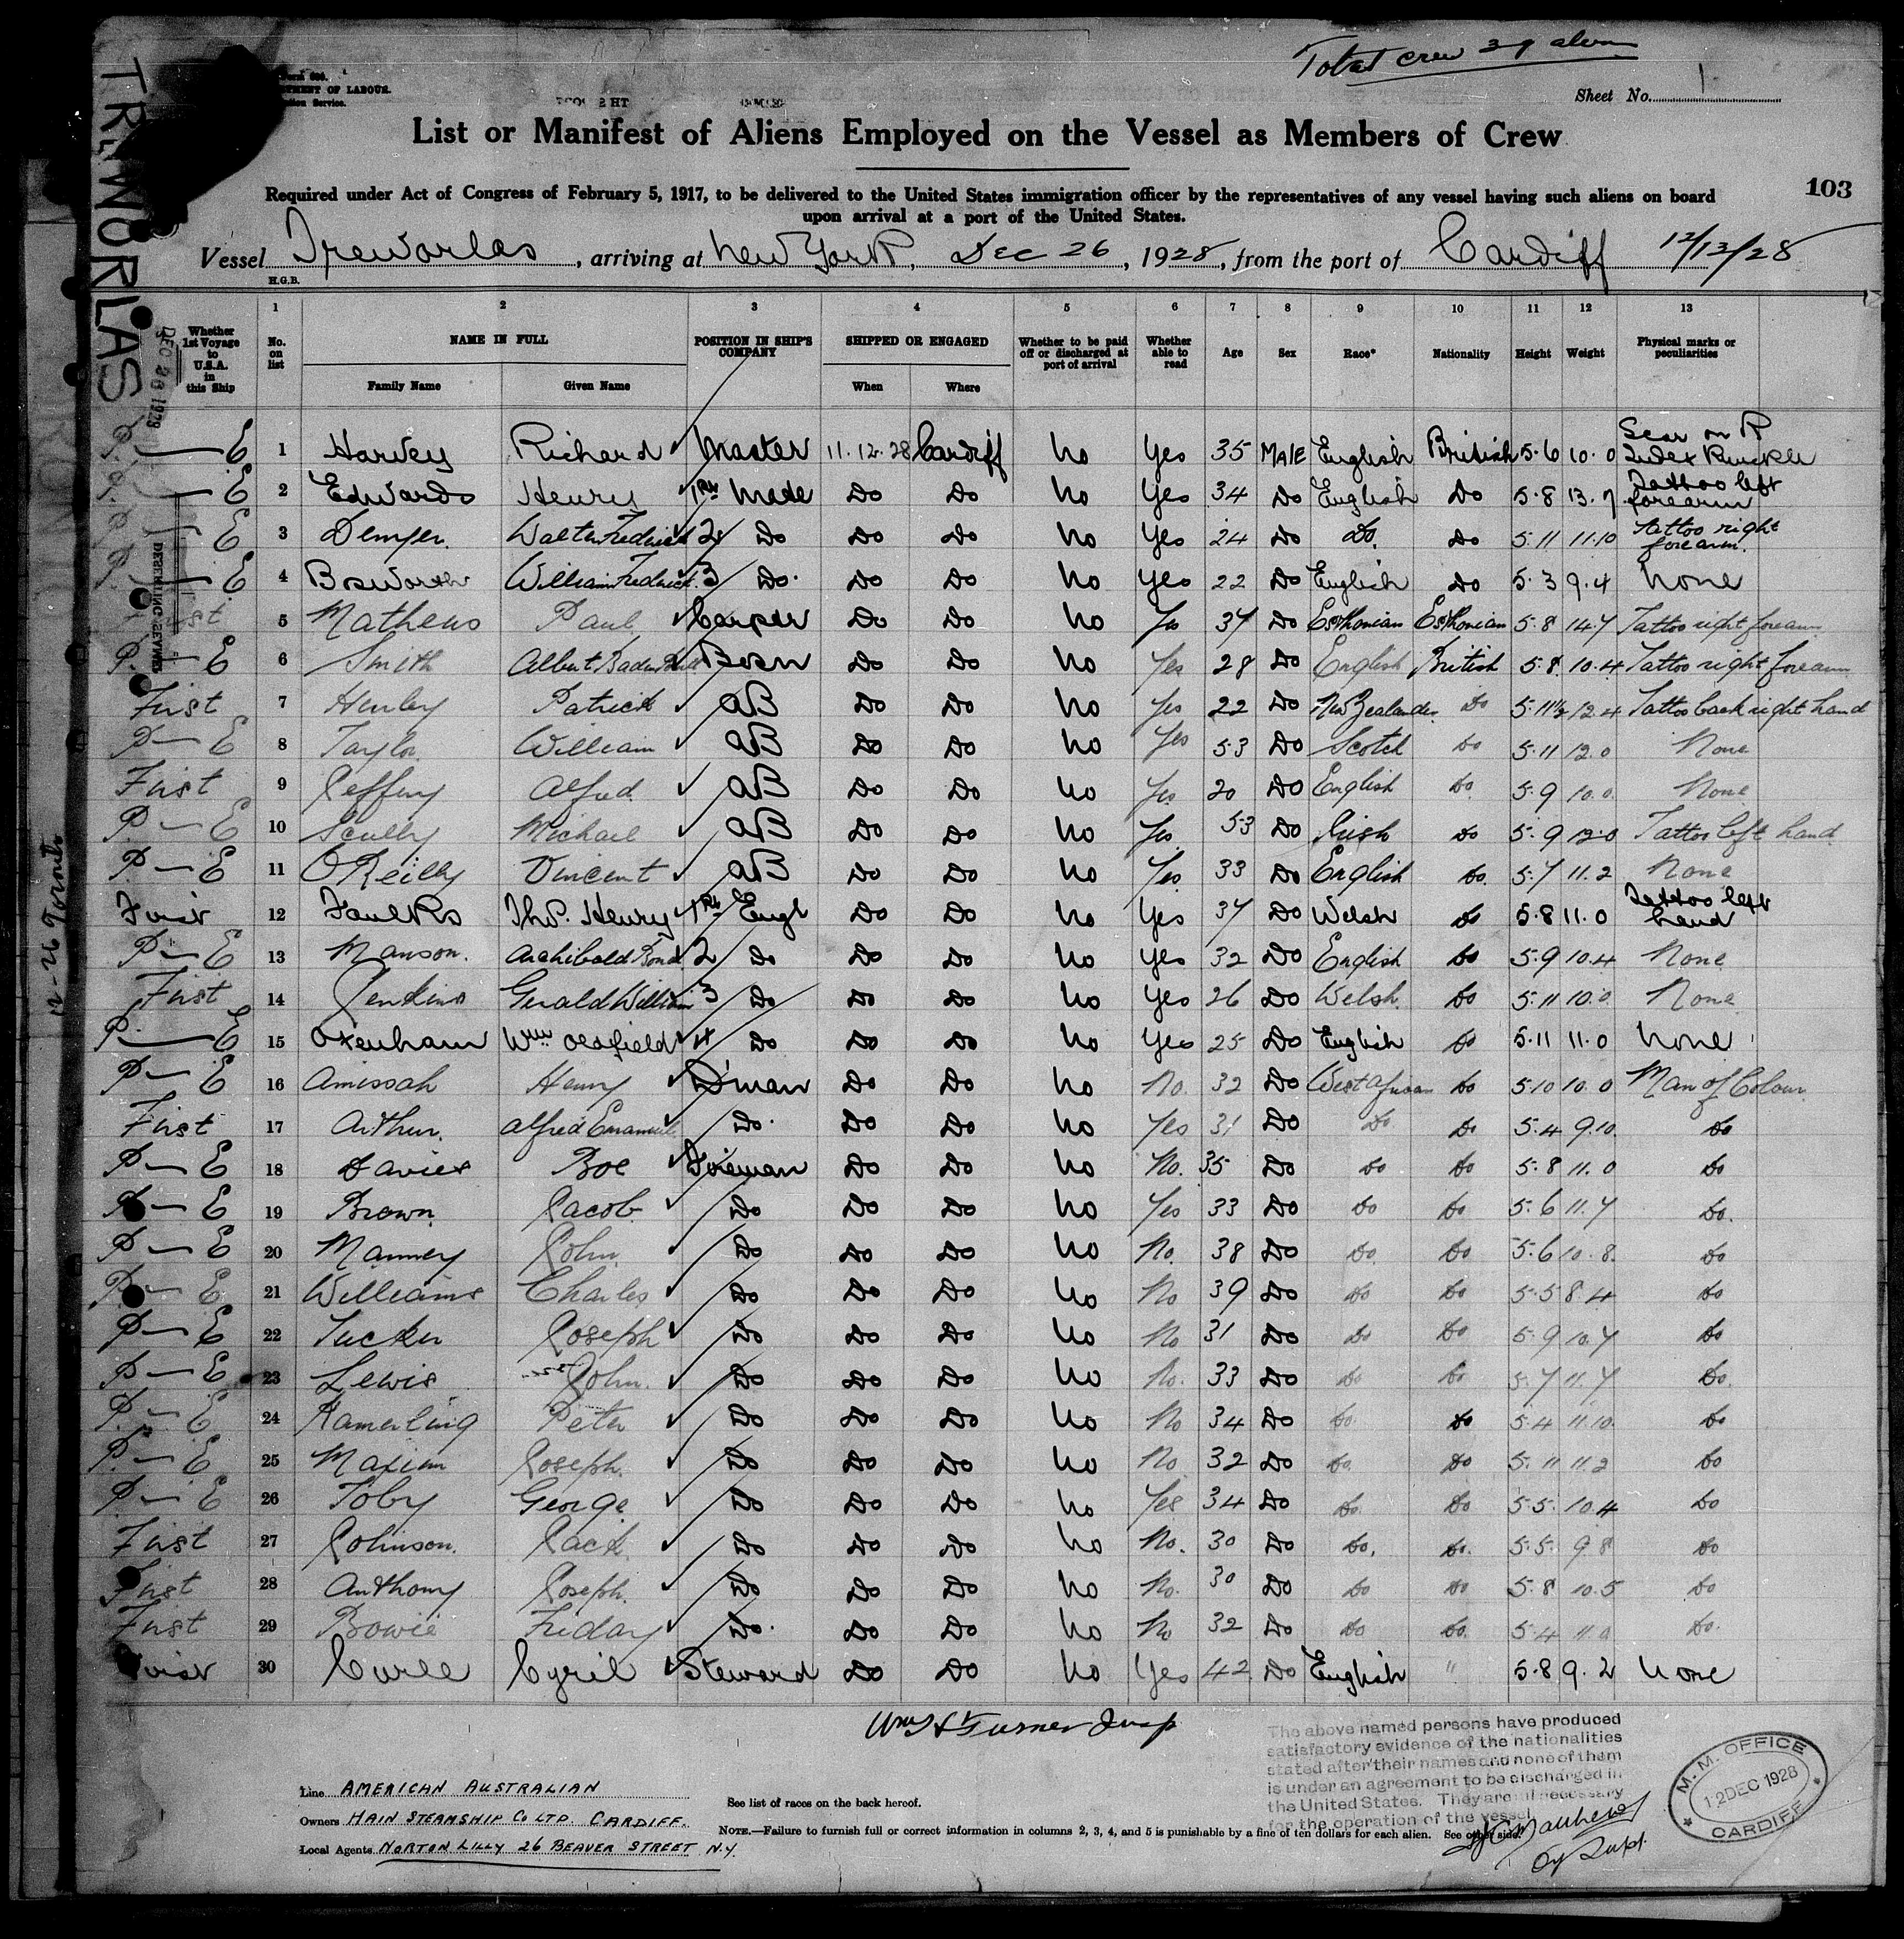 Total crew 39 alien
TREWORLAS
Form 686.
DEPARTMENT OF LABOUR.
Immigration Service.
Sheet No. 1
List or Manifest of Aliens Employed on the Vessel as Members of Crew
103
Required under Act of Congress of February 5, 1917, to be delivered to the United States immigration officer by the representatives of any vessel having such aliens on board
upon arrival at a port of the United States.
Vessel Treworlas, arriving at New York, Dec 26, 1928, from the port of Cardiff 12/12/28
H.G.B.
1 2 3 4 5 6 7 8 9 10 11 12 13
Whether 1st Voyage to U.S.A. in this Ship
No. on list
NAME IN FULL
Family Name Given Name
POSITION IN SHIP'S COMPANY
SHIPPED OR ENGAGED
When Where
Whether to be paid off or discharged at port of arrival
Whether able to read
Age Sex Race* Nationality Height Weight
Physical marks or peculiarities
E 1 Harvey Richard Master 11.12.28 Cardiff No Yes 35 MALE English British 5.6 10.0 Scar on R Index Knuckle
E 2 Edwards Henry 1st Mate Do Do No Yes 34 Do English Do 5.8 13.7 Tattoo left forearm
E 3 Walter Fredrick 2 Do Do Do No Yes 24 Do Do. Do 5.11 11.10 Tattoo right forearm.
E 4 Bosworth William Fredrick 3 Do. Do Do No Yes 22 Do English Do 5.3 9.4 None
5 Mathews Paul Carper Do Do No Yes 37 Do Esthonian Esthonian 5.8 14.7 Tattoo right forearm
P — E 6 Smith Albert Baden Bosn Do Do No Yes 28 Do English British 5.8 10.4 Tattoo right forearm
First 7 Henley Patrick AB Do Do No Yes 22 Do New Zealander Do 5.11½ 12.4 Tattoo back right hand
P — E 8 Taylor William AB Do Do No Yes 53 Do Scotch Do 5.11 12.0 None
First 9 Jeffery Alfred AB Do Do No Yes 20 Do English Do 5.9 10.0 None
P — E 10 Scully Michael AB Do Do No Yes 53 Do Irish Do 5.9 12.0 Tattoo left hand
P — E 11 O'Reilly Vincent AB Do Do No Yes 33 Do English Do. 5.7 11.2 None
First 12 Faulks Thos. Henry 1st Engr Do Do No Yes 37 Do Welsh Do 5.8 11.0 Tattoo left hand
P — E 13 Manson. Archibald Bond 2 Do Do Do No Yes 32 Do English Do 5.9 10.4 None
First 14 Jenkins Gerald William 3 Do Do Do No Yes 26 Do Welsh Do 5.11 10.0 None
P — E 15 Oxenham Wm Oldfield 4 Do Do Do No Yes 25 Do English Do 5.11 11.0 None
P — E 16 Amissah Henry D'man Do Do No No. 32 Do West African Do 5.10 10.0 Man of Colour
First 17 Arthur. Alfred Emanuel Do. Do Do No Yes 31 Do Do Do 5.4 9.10 Do
P — E 18 Davies Boe Fireman Do Do No No. 35 Do Do Do 5.8 11.0 Do
P — E 19 Brown Jacob Do Do Do No Yes 33 Do Do Do 5.6 11.7 Do.
P — E 20 Manney John Do Do Do No No. 38 Do Do. Do 5.6 10.8 Do
P — E 21 Williams Charles Do Do Do No No 39 Do Do Do 5.5 8.4 Do
P — E 22 Tucker Joseph Do Do Do No No 31 Do Do Do 5.9 10.7 Do
P — E 23 Lewis John. Do Do Do No No. 33 Do Do Do 5.7 11.7 Do.
P — E 24 Kamerling Peter Do Do Do No No 34 Do Do. Do 5.4 11.10 Do
P — E 25 Maxim Joseph. Do Do Do No No 32 Do Do. Do 5.11 11.2 Do
P — E 26 Toby George Do Do Do No Yes 34 Do Do. Do 5.5 10.4 Do
First 27 Johnson. Jack. Do Do Do No No. 30 Do Do. Do. 5.5 9.8 Do
First 28 Anthony Joseph. Do Do Do No No. 30 Do Do Do 5.8 10.5 Do
First 29 Bowie Friday Do. Do Do No No 32 Do Do Do. 5.4 11.0 Do.
First 30 Curle Cyril Steward Do Do No Yes 42 Do English " 5.8 9.2 None
Wm S Turner Insp
The above named persons have produced
satisfactory evidence of the nationalities
stated after their names and none of them
is under an agreement to be discharged in
the United States. They are all necessary
for the operation of the vessel
M. M. OFFICE
12 DEC 1928
CARDIFF
Line AMERICAN AUSTRALIAN
Owners HAIN STEAMSHIP CO LTD CARDIFF.
Local Agents NORTON LILLY 26 BEAVER STREET N.Y.
See list of races on the back hereof.
NOTE.—Failure to furnish full or correct information in columns 2, 3, 4, and 5 is punishable by a fine of ten dollars for each alien. See other side.